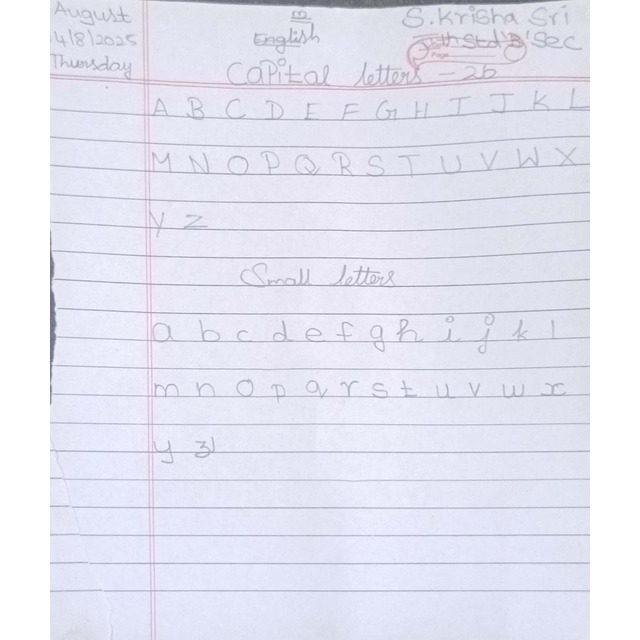 August
4/8/2025
Thursday
English
S. Krisha Sri
Std 'B' Sec
Capital letters - 26
A B C D E F G H I J K L
M N O P Q R S T U V W X
Y Z
Small letters
a b c d e f g h i j k l
m n o p q r s t u v w x
y z